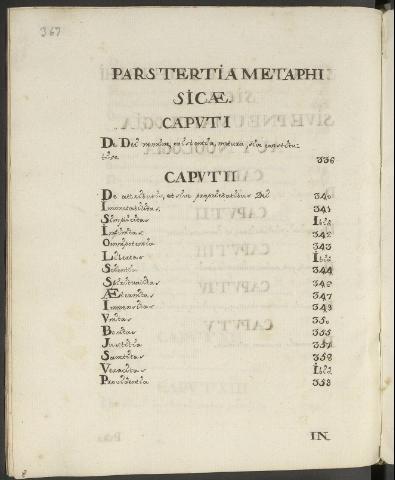 367
PARS TERTIA METAPHI
SICÆ.
CAPVT I
De Dei nomine, existentia, natura, sive constitu-
tione 336
CAPVT II
De attributis, et sive proprietatibus Dei 340
Immutabilitas 341
Simplicitas Ibid
Infinitas 342
Omnipotentia 343
Libertas Ibid
Scientia 344
Spiritualitas 346
Æternitas 347
Immensitas 348
Vnitas 350
Bonitas 355
Justitia 357
Sanctitas 358
Veracitas Ibid
Providentia 358
IN